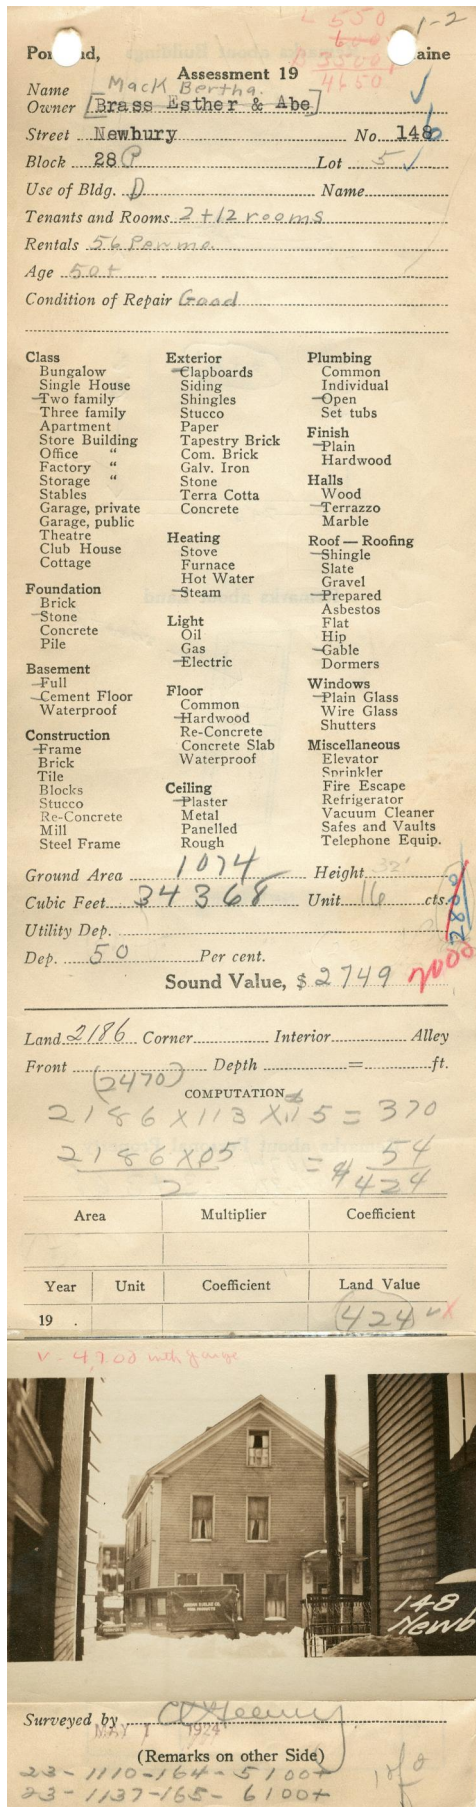 L 550 1-2
600
B 3500
4650
Portland, Maine
Assessment 19
Mack Bertha.
Name
Owner [Brass Esther & Abe]
Street Newbury No. 148
Block 28 P Lot 5
Use of Bldg. D Name
Tenants and Rooms 2+12 rooms
Rentals 56 Per mo.
Age 50+
Condition of Repair Good
Class
Bungalow
Single House
Two family
Three family
Apartment
Store Building
Office "
Factory "
Storage "
Stables
Garage, private
Garage, public
Theatre
Club House
Cottage
Foundation
Brick
Stone
Concrete
Pile
Basement
Full
Cement Floor
Waterproof
Construction
Frame
Brick
Tile
Blocks
Stucco
Re-Concrete
Mill
Steel Frame
Exterior
Clapboards
Siding
Shingles
Stucco
Paper
Tapestry Brick
Com. Brick
Galv. Iron
Stone
Terra Cotta
Concrete
Heating
Stove
Furnace
Hot Water
Steam
Light
Oil
Gas
Electric
Floor
Common
Hardwood
Re-Concrete
Concrete Slab
Waterproof
Ceiling
Plaster
Metal
Panelled
Rough
Plumbing
Common
Individual
Open
Set tubs
Finish
Plain
Hardwood
Halls
Wood
Terrazzo
Marble
Roof — Roofing
Shingle
Slate
Gravel
Prepared
Asbestos
Flat
Hip
Gable
Dormers
Windows
Plain Glass
Wire Glass
Shutters
Miscellaneous
Elevator
Sprinkler
Fire Escape
Refrigerator
Vacuum Cleaner
Safes and Vaults
Telephone Equip.
Ground Area 1074 Height 32'
Cubic Feet 34368 Unit 16 cts.
2800
Utility Dep.
Dep. 50 Per cent.
Sound Value, $ 2749
Land 2186 Corner Interior Alley
Front Depth = ft.
(2470)
COMPUTATION
2186 X 113 X .15 = 370
2186 X .05 = 54
2 $424
Area Multiplier Coefficient
Year Unit Coefficient Land Value
19 . 424
148
Newb
Surveyed by
MAY 1 1924
(Remarks on other Side)
23-1110-164-5100+
23-1137-165-6100+